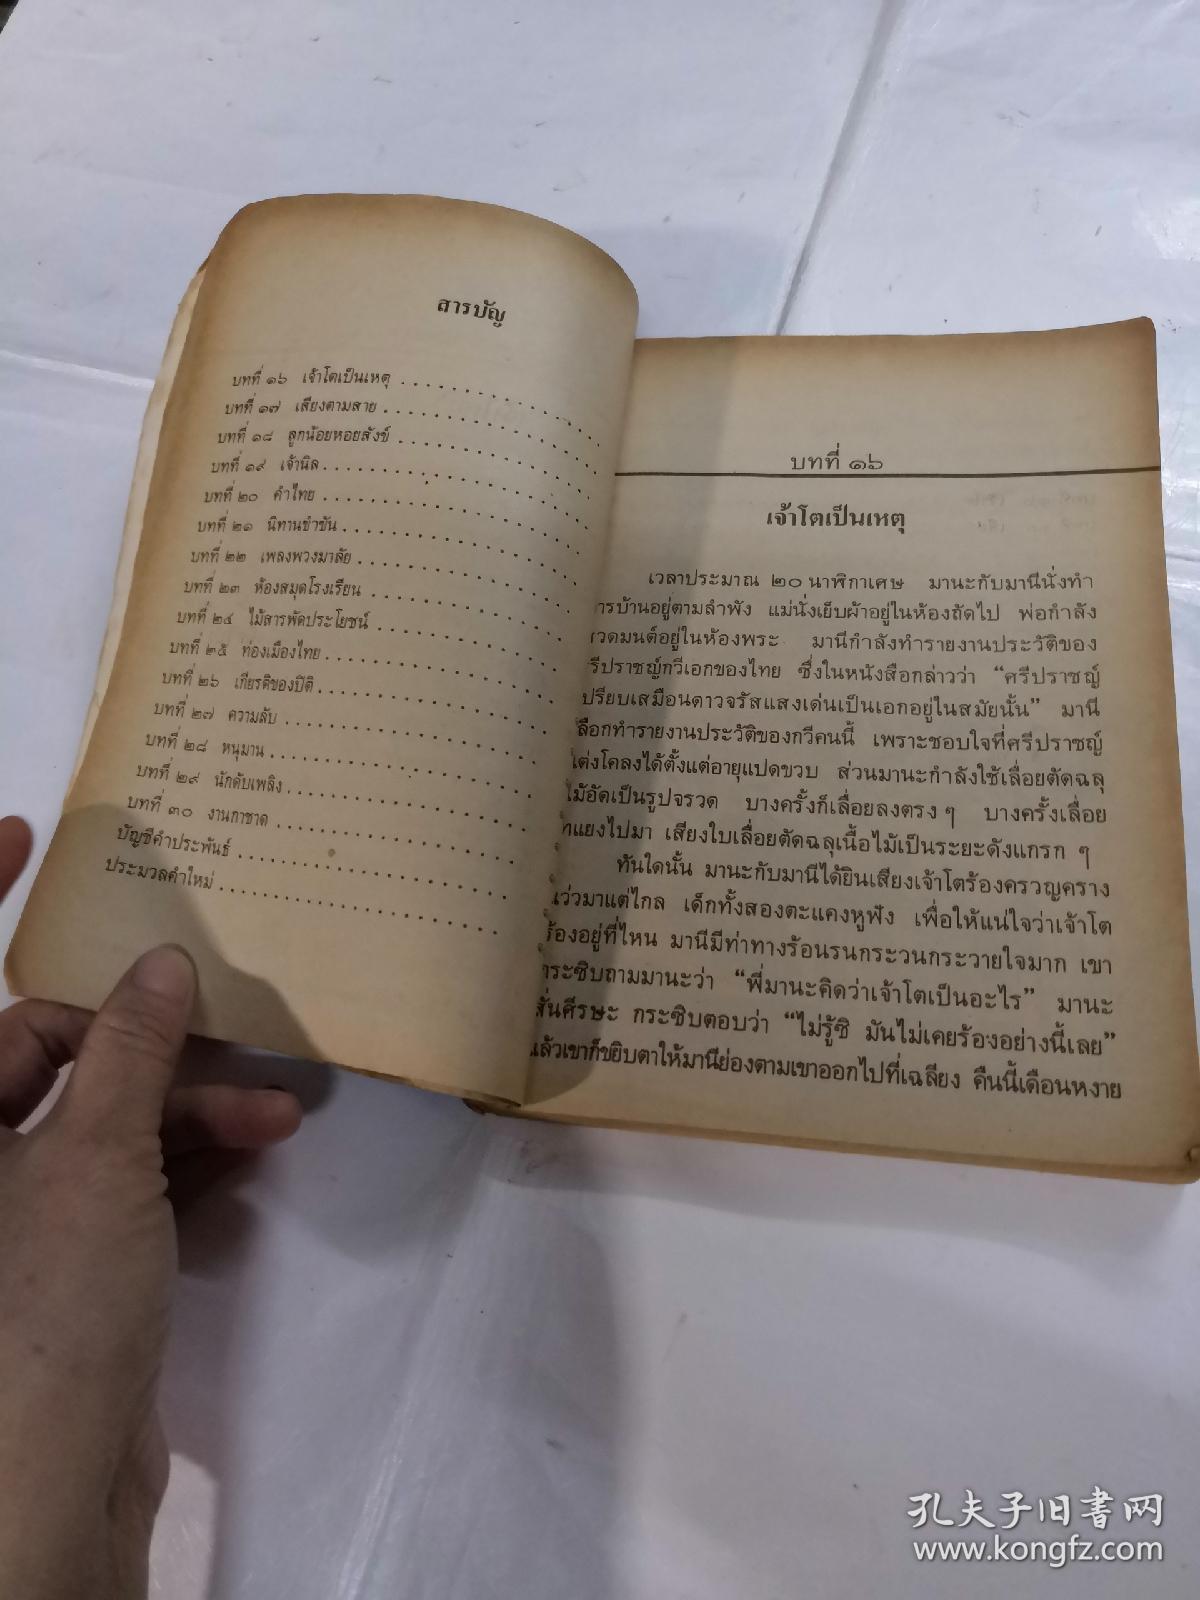 สารบัญ
บทที่ ๑๖ เจ้าโตเป็นเหตุ
บทที่ ๑๗ เสียงตามสาย
บทที่ ๑๘ ลูกน้อยหอยสังข์
บทที่ ๑๙ เจ้านิล
บทที่ ๒๐ คำไทย
บทที่ ๒๑ นิทานขำขัน
บทที่ ๒๒ เพลงพวงมาลัย
บทที่ ๒๓ ห้องสมุดโรงเรียน
บทที่ ๒๔ ไม้สารพัดประโยชน์
บทที่ ๒๕ ท่องเมืองไทย
บทที่ ๒๖ เกียรติของปิติ
บทที่ ๒๗ ความลับ
บทที่ ๒๘ หนุมาน
บทที่ ๒๙ นักดับเพลิง
บทที่ ๓๐ งานกาชาด
บัญชีคำประพันธ์
ประมวลคำใหม่
บทที่ ๑๖
เจ้าโตเป็นเหตุ
เวลาประมาณ ๒๐ นาฬิกาเศษ มานะกับมานีนั่งทำ
การบ้านอยู่ตามลำพัง แม่นั่งเย็บผ้าอยู่ในห้องถัดไป พ่อกำลัง
สวดมนต์อยู่ในห้องพระ มานีกำลังทำรายงานประวัติของ
ศรีปราชญ์กวีเอกของไทย ซึ่งในหนังสือกล่าวว่า “ศรีปราชญ์
เปรียบเสมือนดาวจรัสแสงเด่นเป็นเอกอยู่ในสมัยนั้น” มานี
เลือกทำรายงานประวัติของกวีคนนี้ เพราะชอบใจที่ศรีปราชญ์
แต่งโคลงได้ตั้งแต่อายุแปดขวบ ส่วนมานะกำลังใช้เลื่อยตัดฉลุ
ไม้อัดเป็นรูปจรวด บางครั้งก็เลื่อยลงตรง ๆ บางครั้งเลื่อย
ทแยงไปมา เสียงใบเลื่อยตัดฉลุเนื้อไม้เป็นระยะดังแกรก ๆ
ทันใดนั้น มานะกับมานีได้ยินเสียงเจ้าโตร้องครวญคราง
แว่วมาแต่ไกล เด็กทั้งสองตะแคงหูฟัง เพื่อให้แน่ใจว่าเจ้าโต
ร้องอยู่ที่ไหน มานีมีท่าทางร้อนรนกระวนกระวายใจมาก เขา
กระซิบถามมานะว่า “พี่มานะคิดว่าเจ้าโตเป็นอะไร” มานะ
สั่นศีรษะ กระซิบตอบว่า “ไม่รู้ซิ มันไม่เคยร้องอย่างนี้เลย”
แล้วเขาก็ขยิบตาให้มานีย่องตามเขาออกไปที่เฉลียง คืนนี้เดือนหงาย
孔夫子旧书网
www.kongfz.com